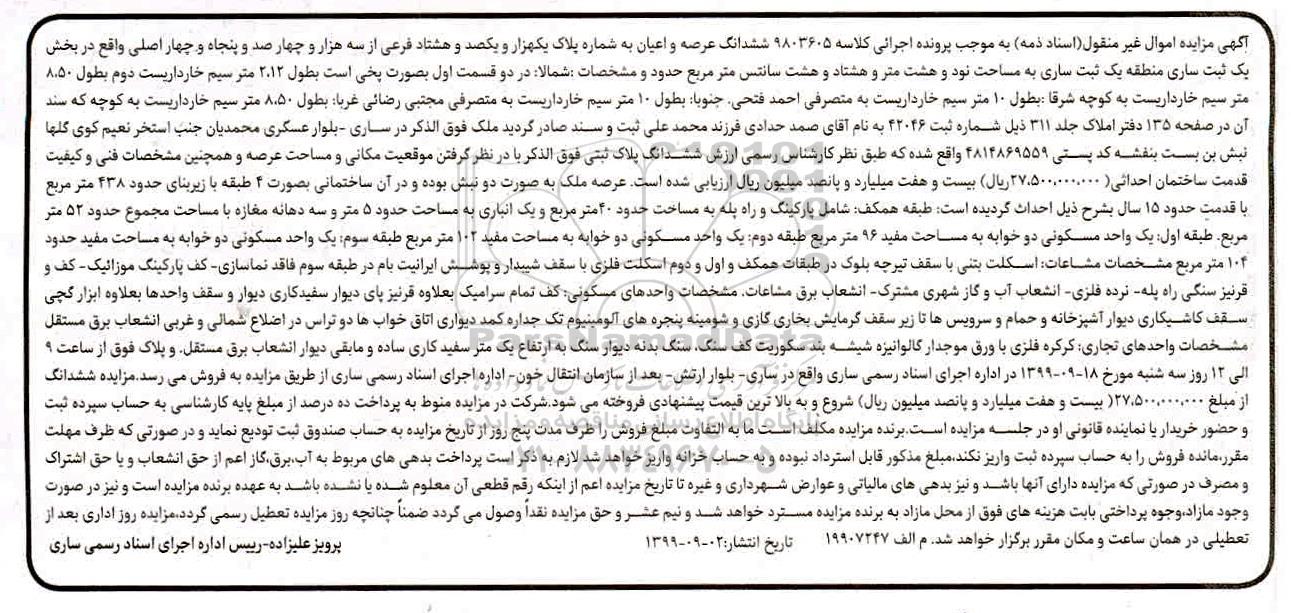 آگهی مزایده اموال غیر منقول(اسناد ذمه) به موجب پرونده اجرائی کلاسه ۹۸۰۳۶۰۵ ششدانگ عرصه و اعیان به شماره پلاک یکهزار و یکصد و هشتاد فرعی از سه هزار و چهار صد و پنجاه و چهار اصلی واقع در بخش
یک ثبت ساری منطقه یک ثبت ساری به مساحت نود و هشت متر و هشتاد و هشت سانتس متر مربع حدود و مشخصات :شمالا: در دو قسمت اول بصورت پخی است بطول ۲،۱۲ متر سیم خارداریست دوم بطول ۸،۵۰
متر سیم خارداریست به کوچه شرقا :بطول ۱۰ متر سیم خارداریست به متصرفی احمد فتحی. جنوبا: بطول ۱۰ متر سیم خارداریست به متصرفی مجتبی رضائی غربا: بطول ۸،۵۰ متر سیم خارداریست به کوچه که سند
آن در صفحه ۱۳۵ دفتر املاک جلد ۳۱۱ ذیل شماره ثبت ۴۲۰۴۶ به نام آقای صمد حدادی فرزند محمد علی ثبت و سند صادر گردید ملک فوق الذکر در ساری -بلوار عسگری محمدیان جنب استخر نعیم کوی گلها
نبش بن بست بنفشه کد پستی ۴۸۱۴۸۶۹۵۵۹ واقع شده که طبق نظر کارشناس رسمی ارزش ششدانگ پلاک ثبتی فوق الذکر با در نظر گرفتن موقعیت مکانی و مساحت عرصه و همچنین مشخصات فنی و کیفیت
قدمت ساختمان احداثی( ۲۷،۵۰۰،۰۰۰،۰۰۰ریال) بیست و هفت میلیارد و پانصد میلیون ریال ارزیابی شده است. عرصه ملک به صورت دو نبش بوده و در آن ساختمانی بصورت ۴ طبقه با زیربنای حدود ۴۳۸ متر مربع
با قدمت حدود ۱۵ سال بشرح ذیل احداث گردیده است: طبقه همکف: شامل پارکینگ و راه پله به مساحت حدود ۴۰متر مربع و یک انباری به مساحت حدود ۵ متر و سه دهانه مغازه با مساحت مجموع حدود ۵۲ متر
مربع. طبقه اول: یک واحد مسکونی دو خوابه به مساحت مفید ۹۶ متر مربع طبقه دوم: یک واحد مسکونی دو خوابه به مساحت مفید ۱۰۲ متر مربع طبقه سوم: یک واحد مسکونی دو خوابه به مساحت مفید حدود
۱۰۴ متر مربع مشخصات مشاعات: اسکلت بتنی با سقف تیرچه بلوک در طبقات همکف و اول و دوم اسکلت فلزی با سقف شیبدار و پوشش ایرانیت بام در طبقه سوم فاقد نماسازی- کف پارکینگ موزائیک- کف و
قرنیز سنگی راه پله- نرده فلزی- انشعاب آب و گاز شهری مشترک- انشعاب برق مشاعات. مشخصات واحدهای مسکونی: کف تمام سرامیک بعلاوه قرنیز پای دیوار سفیدکاری دیوار و سقف واحدها بعلاوه ابزار گچی
سقف کاشیکاری دیوار آشپزخانه و حمام و سرویس ها تا زیر سقف گرمایش بخاری گازی و شومینه پنجره های آلومینیوم تک جداره کمد دیواری اتاق خواب ها دو تراس در اضلاع شمالی و غربی انشعاب برق مستقل
مشخصات واحدهای تجاری: کرکره فلزی با ورق موجدار گالوانیزه شیشه بند سکوریت کف سنگ، سنگ بدنه دیوار سنگ به ارتفاع یک متر سفید کاری ساده و مابقی دیوار انشعاب برق مستقل. و پلاک فوق از ساعت ۹
الی ۱۲ روز سه شنبه مورخ ۱۸-۰۹-۱۳۹۹ در اداره اجرای اسناد رسمی ساری واقع در ساری- بلوار ارتش- بعد از سازمان انتقال خون- اداره اجرای اسناد رسمی ساری از طریق مزایده به فروش می رسد.مزایده ششدانگ
از مبلغ ۲۷،۵۰۰،۰۰۰،۰۰۰( بیست و هفت میلیارد و پانصد میلیون ریال) شروع و به بالا ترین قیمت پیشنهادی فروخته می شود.شرکت در مزایده منوط به پرداخت ده درصد از مبلغ پایه کارشناسی به حساب سپرده ثبت
و حضور خریدار یا نماینده قانونی او در جلسه مزایده است.برنده مزایده مکلف است ما به التفاوت مبلغ فروش را ظرف مدت پنج روز از تاریخ مزایده به حساب صندوق ثبت تودیع نماید و در صورتی که ظرف مهلت
مقرر،مانده فروش را به حساب سپرده ثبت واریز نکند،مبلغ مذکور قابل استرداد نبوده و به حساب خزانه واریز خواهد شد لازم به ذکر است پرداخت بدهی های مربوط به آب،برق،گاز اعم از حق انشعاب و یا حق اشتراک
و مصرف در صورتی که مزایده دارای آنها باشد و نیز بدهی های مالیاتی و عوارض شهرداری و غیره تا تاریخ مزایده اعم از اینکه رقم قطعی آن معلوم شده یا نشده باشد به عهده برنده مزایده است و نیز در صورت
وجود مازاد،وجوه پرداختی بابت هزینه های فوق از محل مازاد به برنده مزایده مسترد خواهد شد و نیم عشر و حق مزایده نقداً وصول می گردد ضمناً چنانچه روز مزایده تعطیل رسمی گردد،مزایده روز اداری بعد از
تعطیلی در همان ساعت و مکان مقرر برگزار خواهد شد. م الف ۱۹۹۰۷۲۴۷ تاریخ انتشار:۰۲-۰۹-۱۳۹۹ پرویز علیزاده-رییس اداره اجرای اسناد رسمی ساری
ParsNamadData
۰۲۱-۸۸۳۴۹۶۷۰-۵